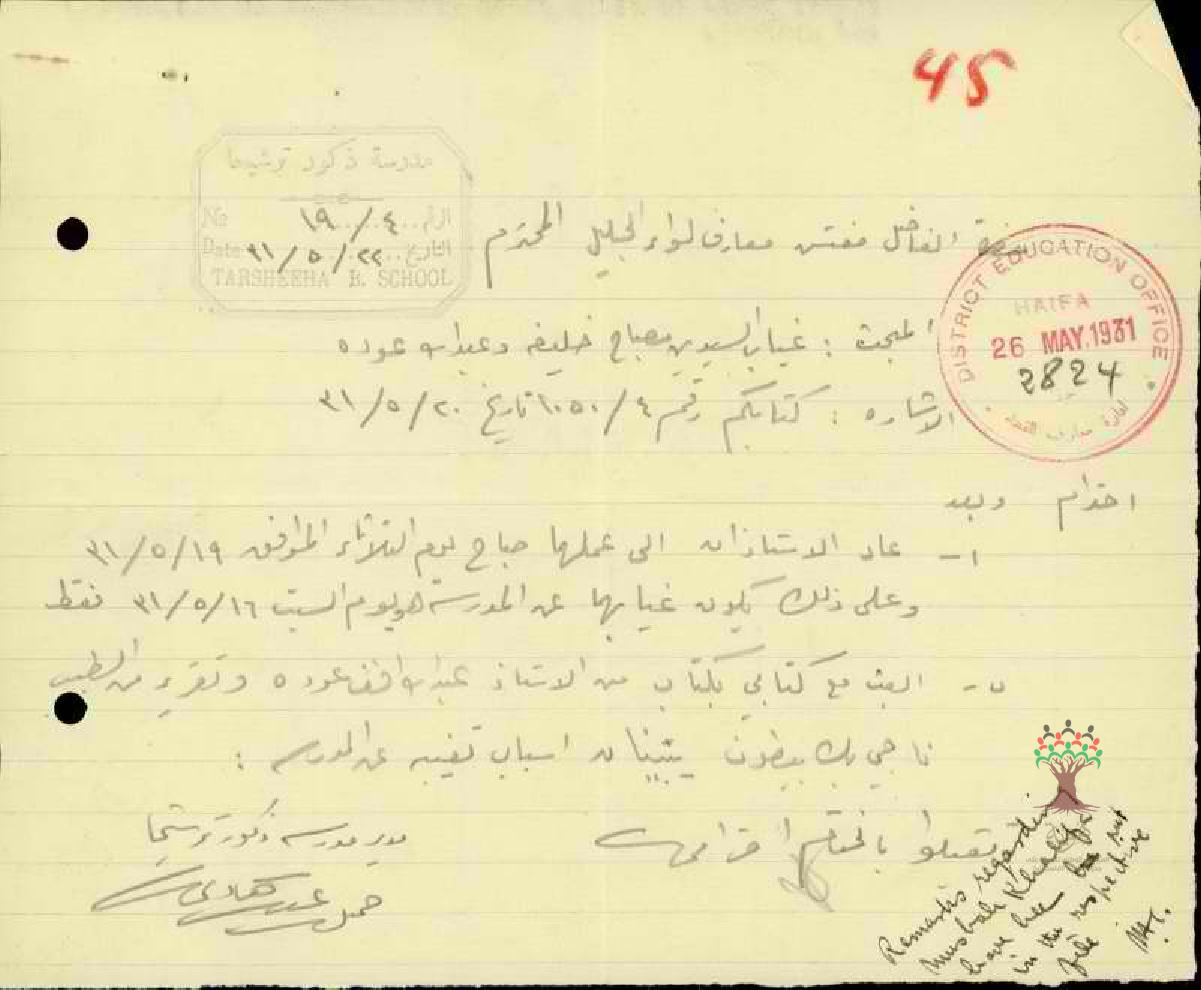 45
مدرسة ذكور ترشيحا
№ ١٩٠/٤ الرقم
Date ٣١/٥/٢٢ التاريخ
TARSHEEHA B. SCHOOL
الفاضل مفتش معارف لواء الجليل المحترم
DISTRICT EDUCATION OFFICE
HAIFA
26 MAY.1931
2824
المبحث : غياب السيدين مصباح خليفه وعبدالله عوده
الاشاره : كتابكم رقم ١٠٥٠/٤ تاريخ ٣١/٥/٢٠
احترام وبعد
١- عاد الاستاذان الى عملهما صباح يوم الثلاثاء الموافق ٣١/٥/١٩
وعلى ذلك يكون غيابهما عن المدرسة هو يوم السبت ٣١/٥/١٦ فقط
٢- ابعث مع كتابي بكتاب من الاستاذ عبدالله افندي عوده وتقرير من الطبيب
ناجي بك بيضون يبينان اسباب تغيبه عن المدرسه :
تفضلوا بقبول احترامي
مدير مدرسه ذكور ترشيحا
Remarks regarding
Musbah Khalifa
have been put
in the respective
file